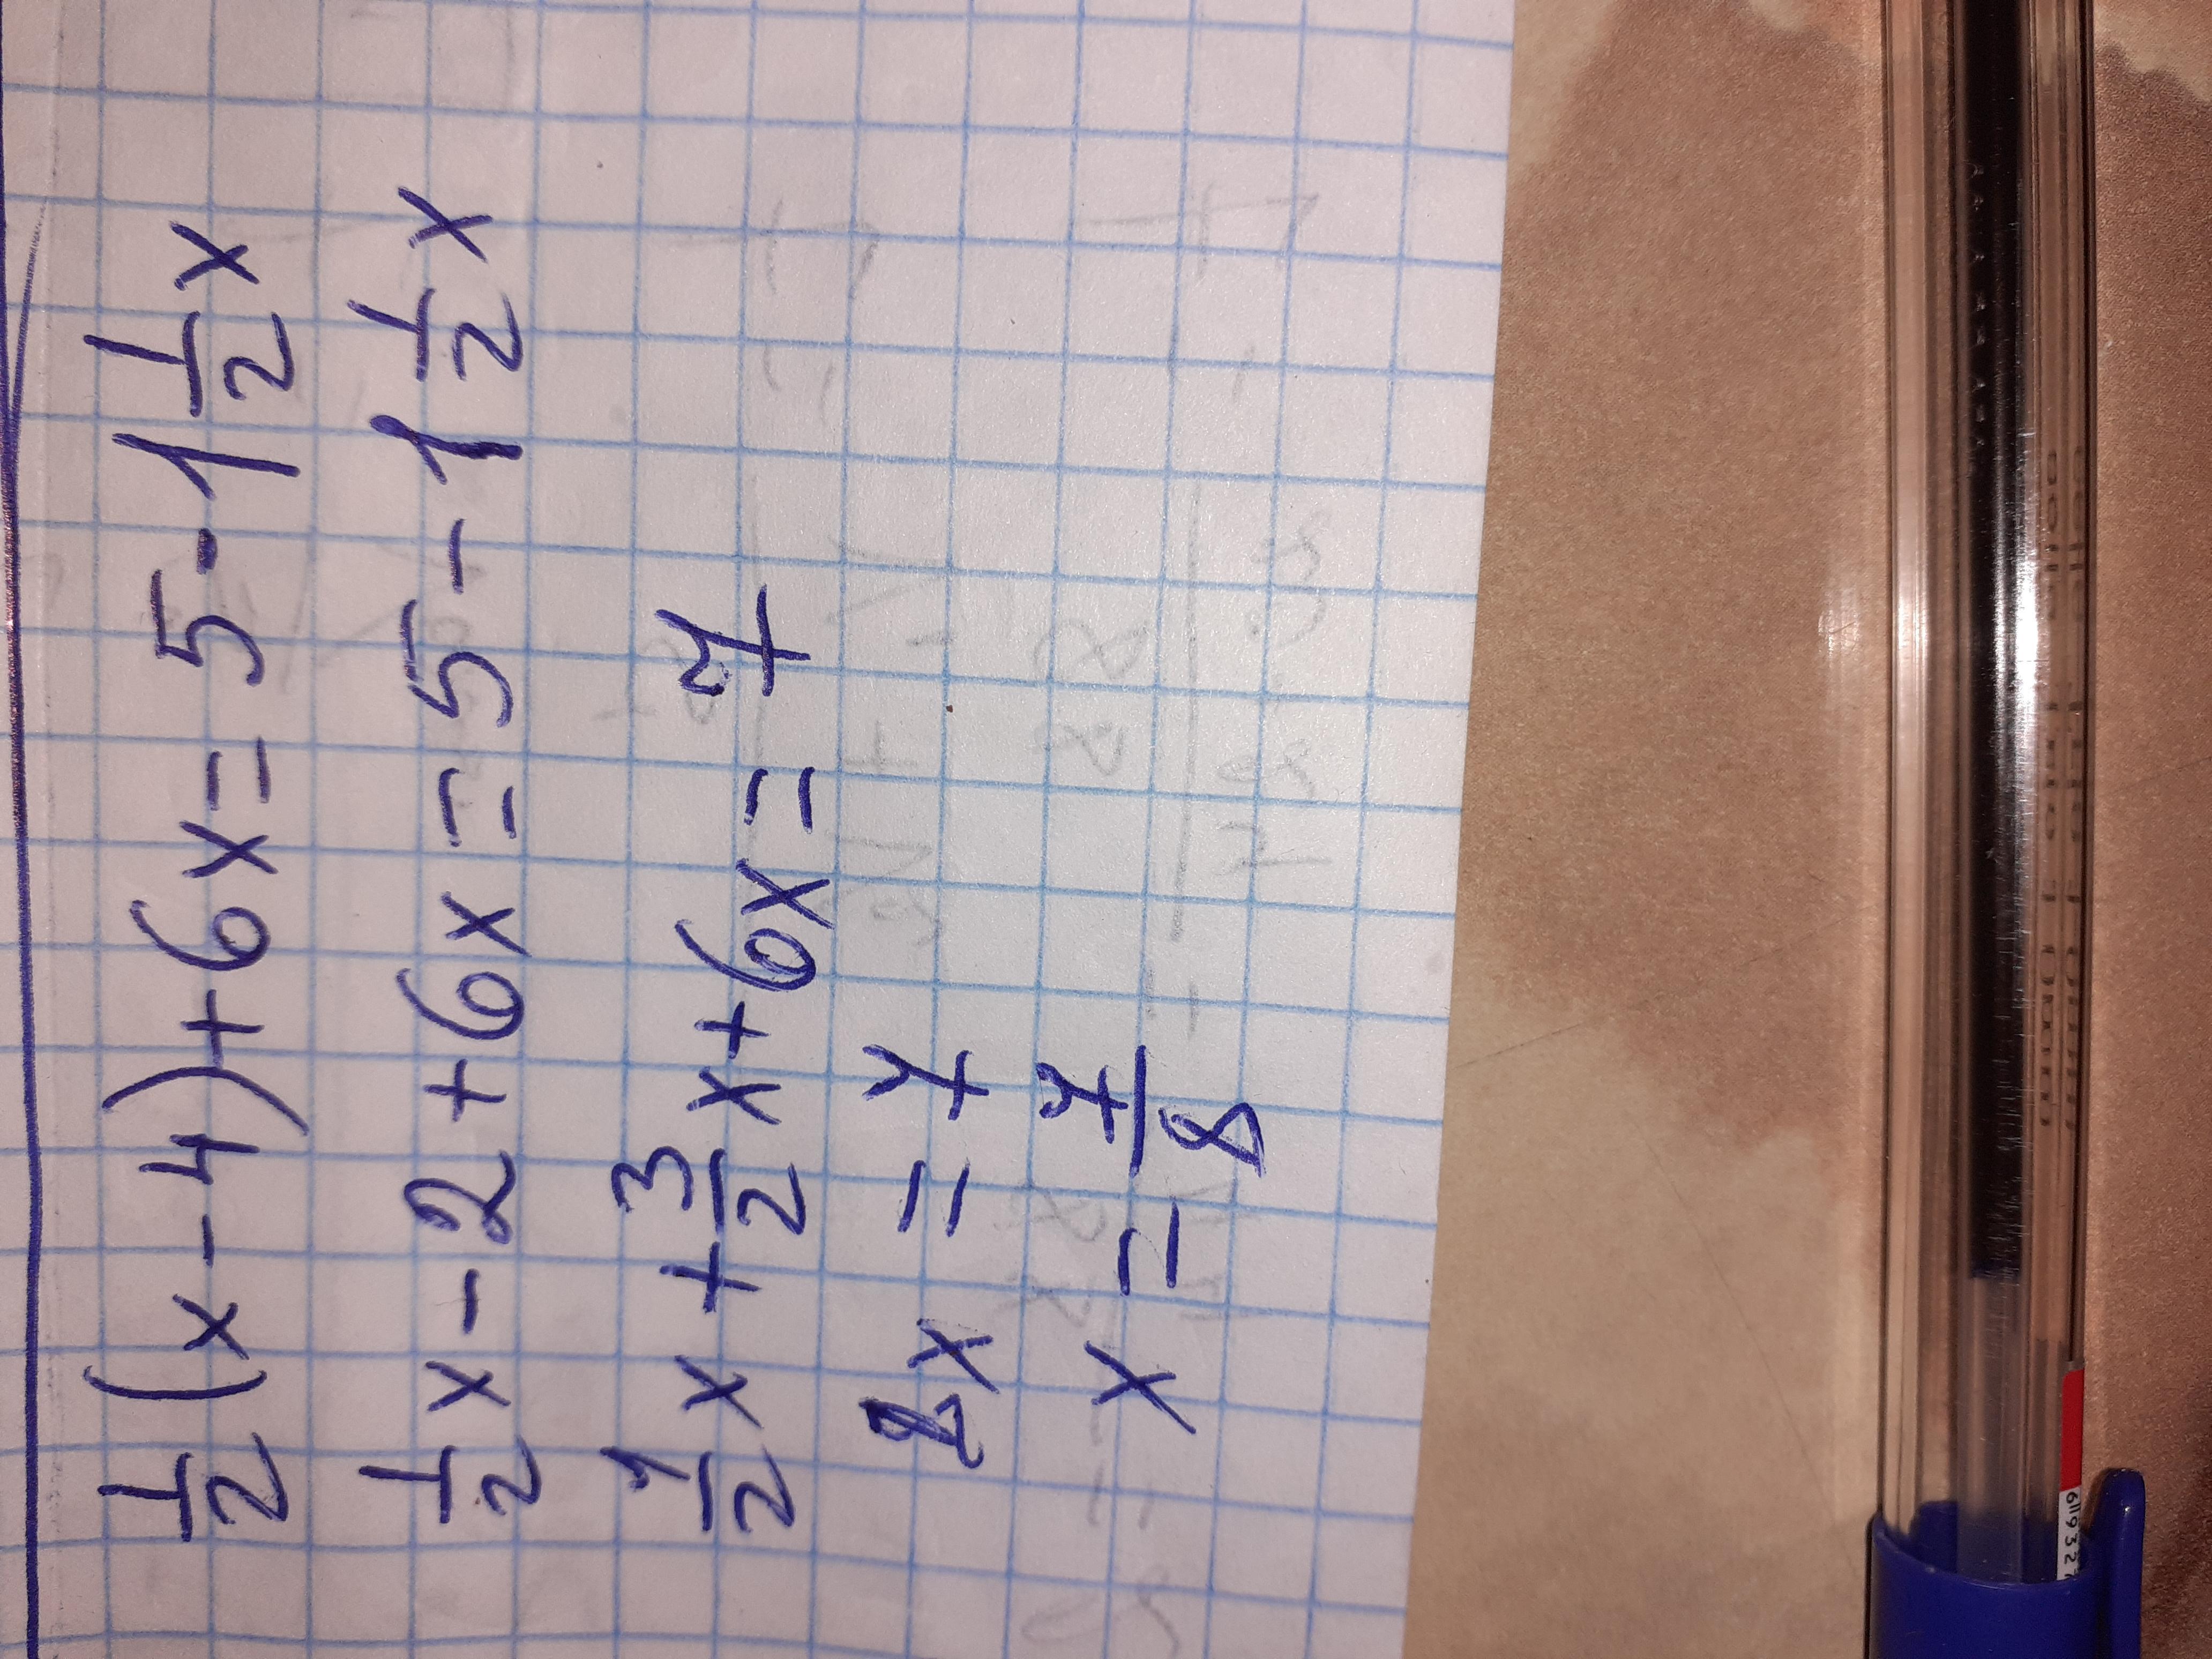 ½(x-4)+6x=5-1½x
½x-2+6x=5-1½x
½x+3/2x+6x=7
8x=7
x=7/8